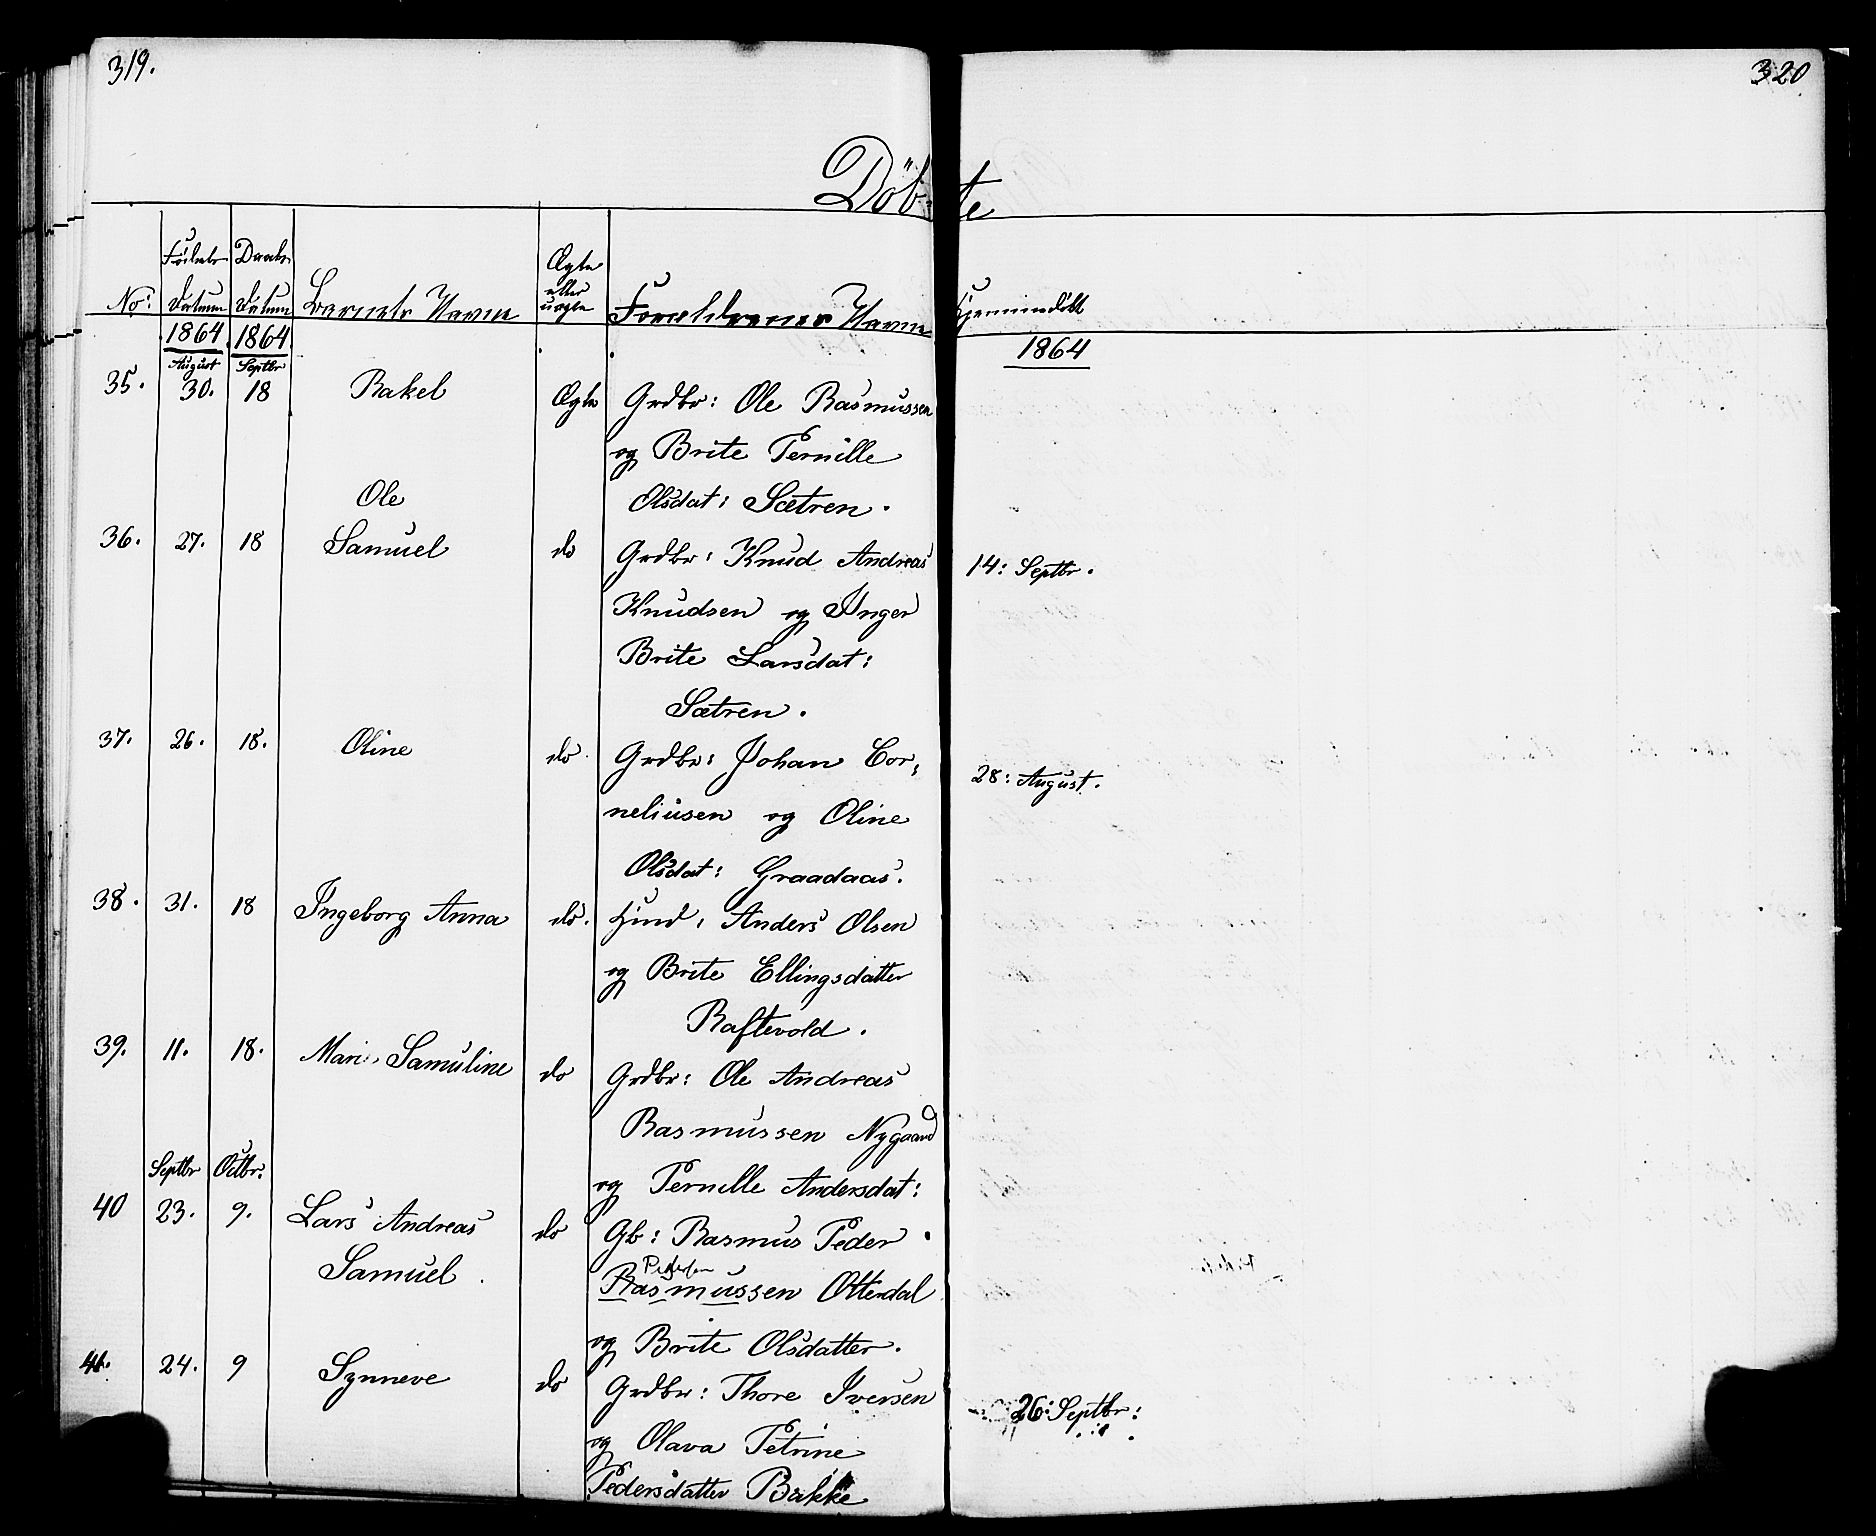 319.
320
Döb-te
No:
Födsels Datum
Daabs Datum
Barnets Navn
Ægte eller uægte
Forældrenes Navne
Hjemmedöbt
1864 1864 1864
August Septbr
35. 30. 18 Rakel Ægte Grdbr: Ole Rasmussen
og Brite Pernille
Olsdat: Sætren.
36. 27. 18 Ole Samuel do Grdbr: Knud Andreas 14: Septbr.
Knudsen og Inger
Brite Larsdat:
Sætren.
37. 26. 18. Oline do. Grdbr: Johan Cor-
28: August.
neliusen og Oline
Olsdat: Graadaas.
38. 31. 18 Ingeborg Anna do. Huusmd: Anders Olsen
og Brite Ellingsdatter
Raftevold.
39. 11. 18. Marie Samuline do Grdbr: Ole Andreas
Rasmussen Nygaard
og Pernille Andersdat:
Septbr Octbr:
40 23. 9. Lars Andreas do Gb: Rasmus Peder
Samuel. Pedersen
Rasmussen Otterdal
og Brite Olsdatter.
41. 24. 9 Synneve do Grdbr: Thore Iversen 26: Septbr:
og Olava Petrine
Pedersdatter Bakke